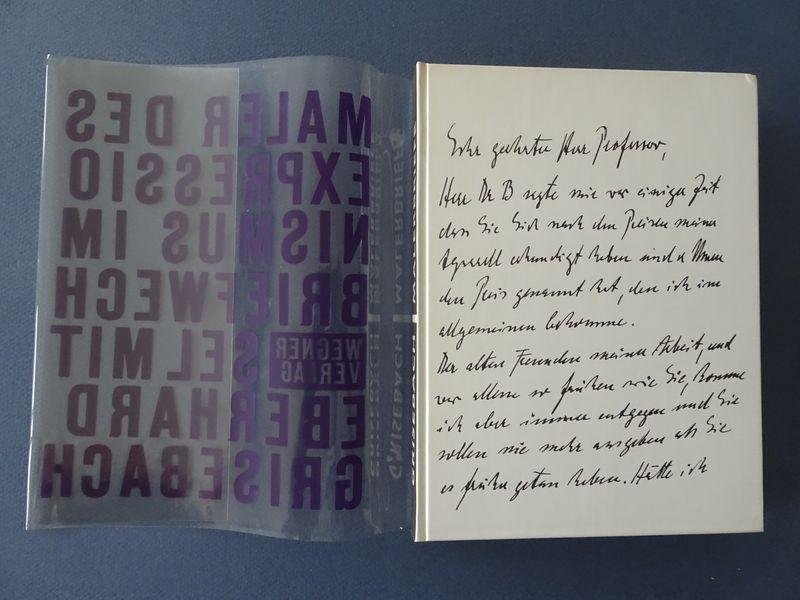 MALER DES
EXPRESSIO
NISMUS IM
BRIEFWECH
SEL MIT
WEGNER
VERLAG
EBERHARD
GRISEBACH
GRISEBACH MALERBRIEFE
Sehr geehrter Herr Professor,
Herr Dr B sagte mir vor einiger Zeit
dass Sie Sich nach den Preisen meiner
Aquarelle erkundigt haben und er Ihnen
den Preis genannt hat, den ich im
allgemeinen bekomme.
Den alten Freunden meiner Arbeit, und
vor allem so frühen wie Sie, komme
ich aber immer entgegen und Sie
sollen nie mehr ausgeben als Sie
es früher getan haben. Hätte ich